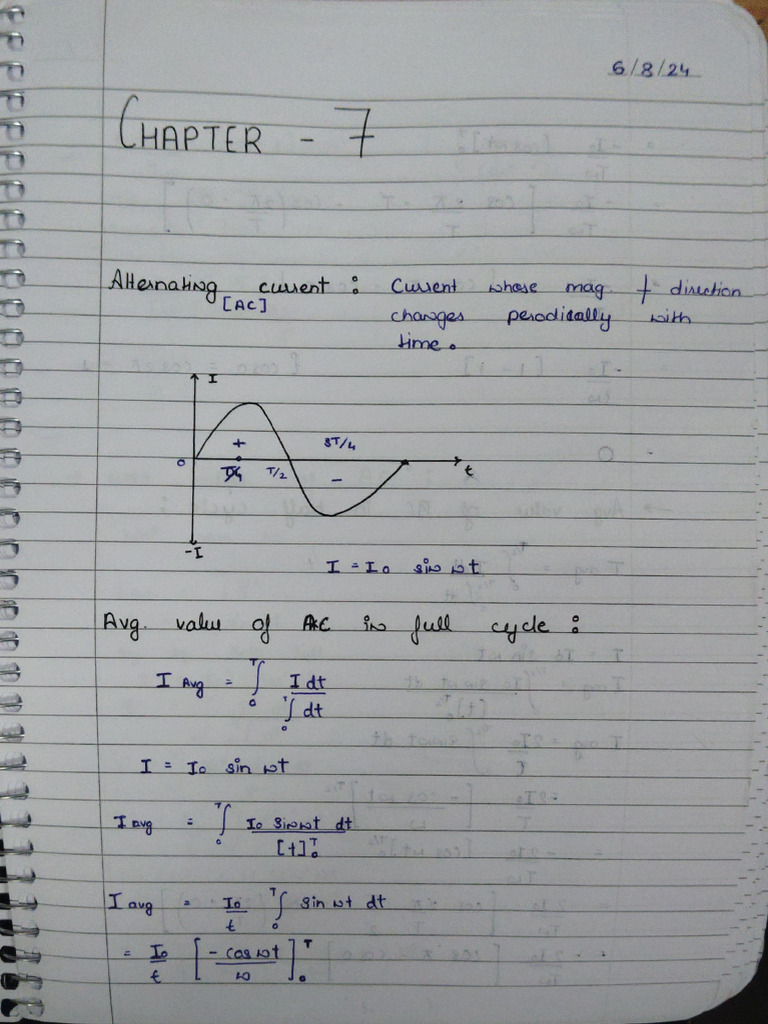 6/8/24
CHAPTER - 7
Alternating current : Current whose mag & direction
[AC] changes perodically with
time.
I
+ 3T/4
0 T/4 T/2 - t
-I
I = I₀ sin ωt
Avg. value of AC in full cycle :
I Avg = ∫₀ᵀ I dt / ∫₀ᵀ dt
I = I₀ sin ωt
I avg = ∫₀ᵀ I₀ sin ωt dt / [t]₀ᵀ
I avg = I₀/t ∫₀ᵀ sin ωt dt
= I₀/t [- cos ωt / ω]₀ᵀ